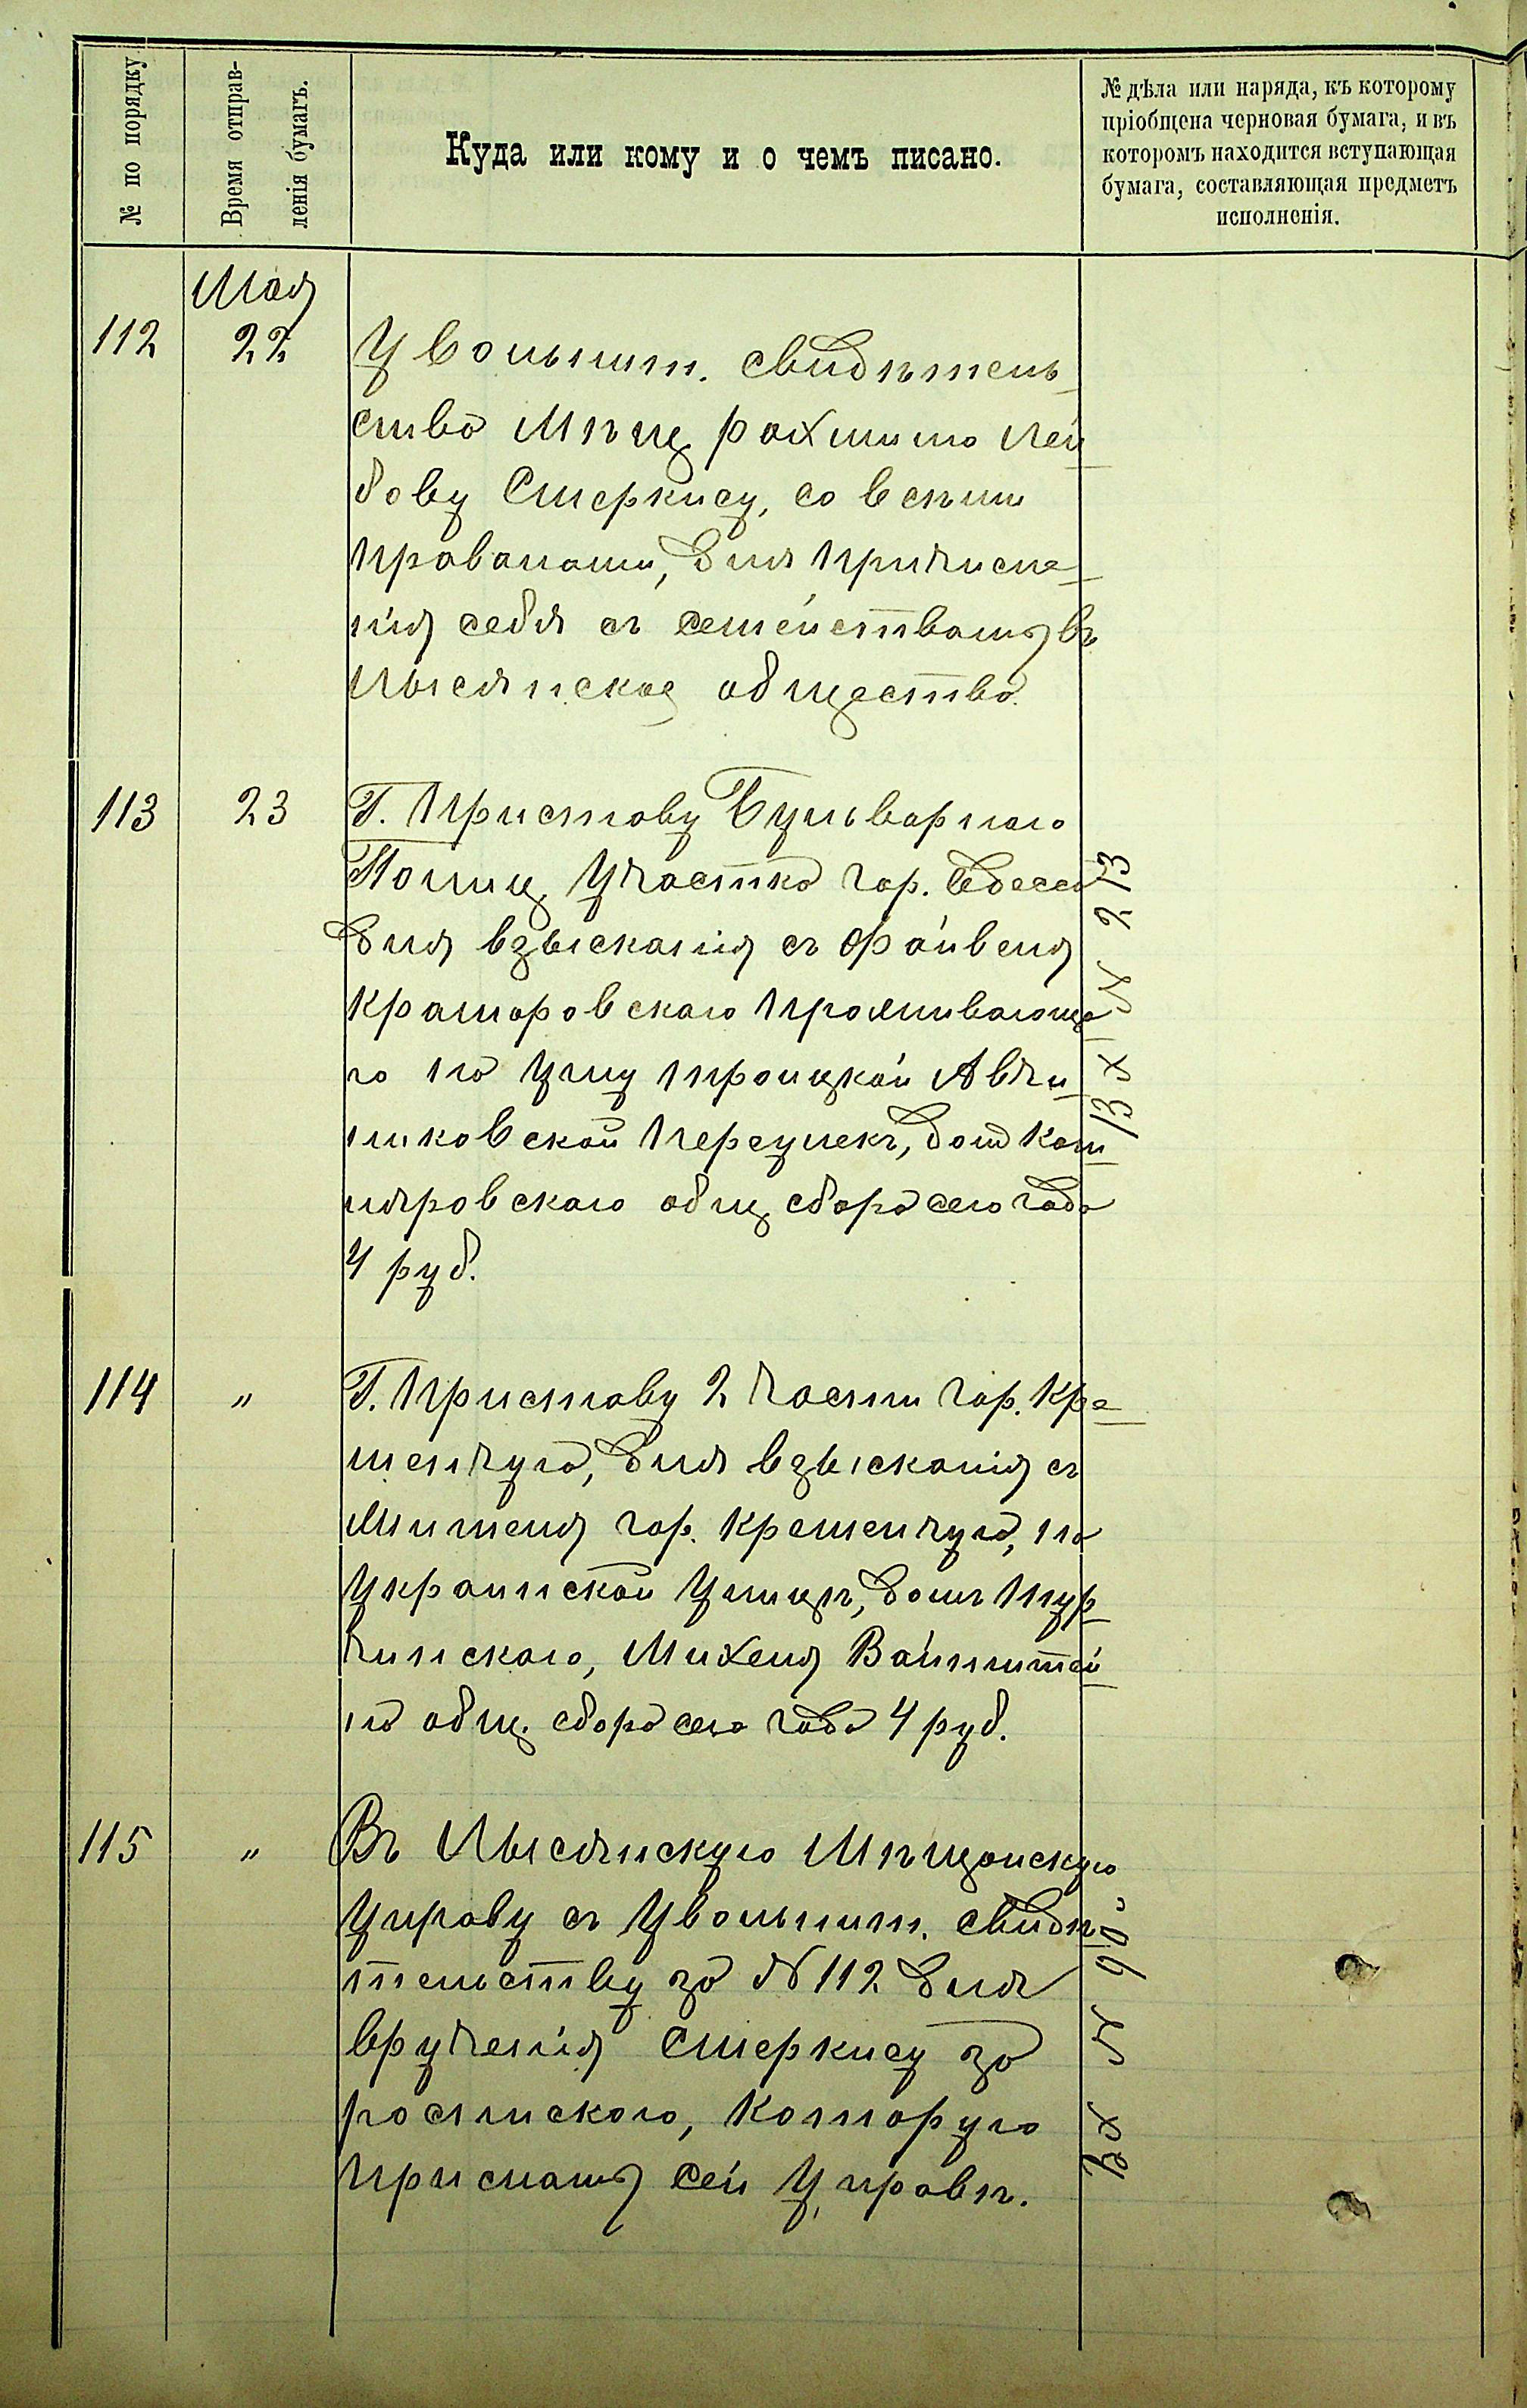 № по порядку
Время отправ-
ленія бумагъ.
Куда или кому и о чемъ писано.
№ дѣла или наряда, къ которому
пріобщена черновая бумага, и въ
которомъ находится вступающая
бумага, составляющая предметъ
исполненія.
Мая
112 22 Увольнит. свидѣтель
ство Мѣщ. Рахмилю Лей
бову Смеркису, со всѣми
правалами, для причисле
нія себя съ семействамъ въ
Лысянское общество.
113 23 Г. Приставу Бульварнаго
Полиц. Участка гор. Одессы
для взысканія съ Файвеля
Краморовскаго проживающа
го по улиц Троицкой
Переулекъ, дом
общ сбора сего года
4 руб.
114 " Г. Приставу 2 части гор. Кре
менчуга, для взысканія съ
жителя гор. Кременчуга, по
Украинской Улицѣ, домъ
Михеля Вайнштей
на общ. сбора сего года 4 руб.
115 " Въ Лысянскую Мѣщанскую
Управу съ Увольнит. свидѣ
тельству за № 112 для
врученія Смеркису за
росписского, которую
прислать сей Управѣ.
Вх № 213
Вх № 90